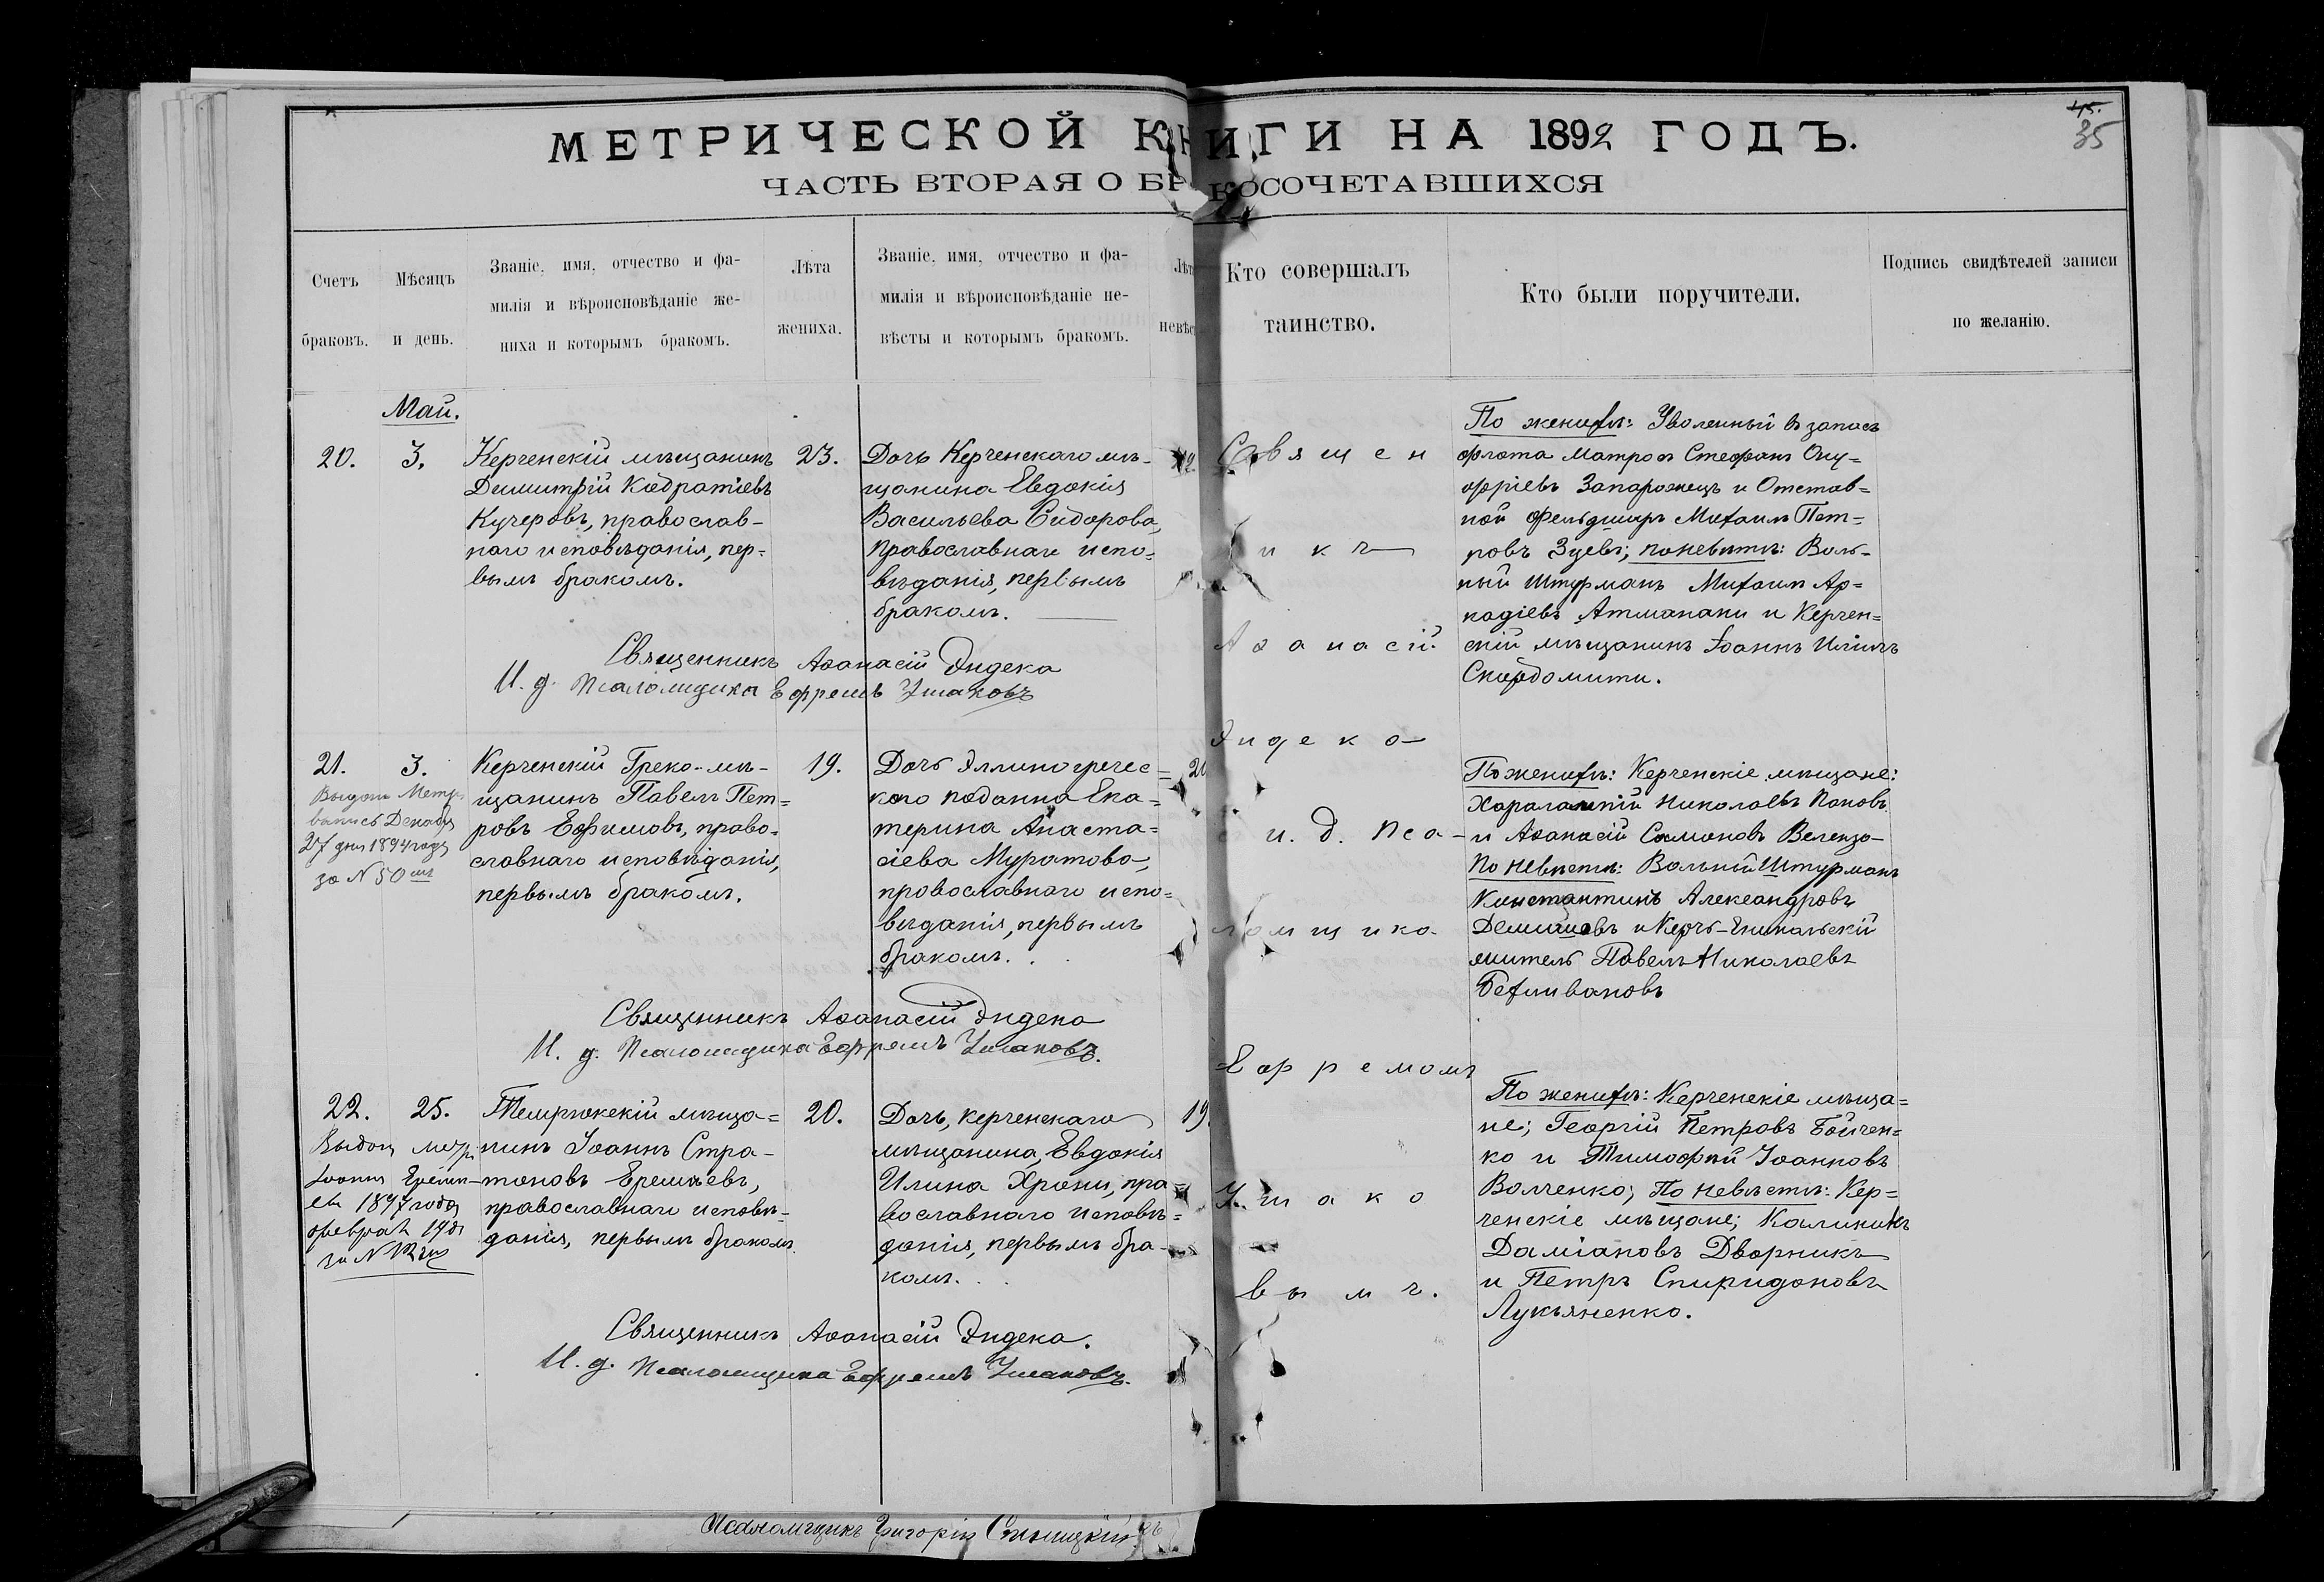 МЕТРИЧЕСКОЙ КНИГИ НА 1892 ГОДЪ.
45.
35
ЧАСТЬ ВТОРАЯ О БРАКОСОЧЕТАВШИХСЯ
Счетъ браковъ.
Мѣсяцъ и день.
Званіе, имя, отчество и фа-
милія и вѣроисповѣданіе же-
ниха и которымъ бракомъ.
Лѣта
жениха.
Званіе, имя, отчество и фа-
милія и вѣроисповѣданіе не-
вѣсты и которымъ бракомъ.
Лѣта
невѣс
Кто совершалъ
таинство.
Кто были поручители.
Подпись свидѣтелей записи
по желанію.
Май.
20.
3.
Керченскій мѣщанинъ
Димитрій Кодратіевъ
Кучеровъ, православ-
наго исповѣданія, пер-
вымъ бракомъ.
23.
Дочь Керченскаго мѣ-
щанина Евдокія
Васильева Сидорова,
православнаго испо-
вѣданія, первымъ
бракомъ.
Священникъ Аѳанасій Эндека
И. д. Псаломщика Ефремъ Ушаковъ
По женихѣ: Уволенный въ запасъ
флота матросъ Стефанъ Ону-
фріевъ Запарожецъ и Отстав-
ной фельдшеръ Михаилъ Пет-
ровъ Зуевъ; по невѣстѣ: Воль-
ный Штурманъ Михаилъ Ар-
кадіевъ Атманаки и Керчен-
скій мѣщанинъ Іоаннъ Иліинъ
21.
3.
Выдана Метр.
выпись Декабря
27 дня 1894 года
за N 50 мъ
Керченскій Греко-мѣ-
щанинъ Павелъ Пет=
ровъ Ефимовъ, право-
славнаго исповѣданія,
первымъ бракомъ.
19.
Дочь Эллиногречес=
каго поданна Ека=
терина Анаста=
сіева Муратова,
православнаго испо-
вѣданія, первымъ
бракомъ.
20
Священникъ Аѳанасій Эндека
И. д. Псаломщика Ефремъ Ушаковъ.
По женихѣ: Керченскіе мѣщане:
Харалампій Николаевъ Поповъ
и Аѳанасій Самоновъ
По невѣстѣ: Вольный Штурманъ
Константинъ Александровъ
и Керчь-Еникальскій
житель Павелъ Николаевъ
22.
25.
Выдан метр.
1897 года
февраля 14 дн
за N 12
Темрюкскій мѣща=
нинъ Іоаннъ Стра-
тоновъ Еремѣевъ,
православнаго исповѣ-
данія, первымъ бракомъ.
20.
Дочь, керченскаго
мѣщанина, Евдокія
Ильина Хрони, пра=
вославнаго исповѣ=
данія, первымъ бра-
комъ.
19.
Священникъ Аѳанасій Эндека.
И. д. Псаломщика Ефремъ Ушаковъ.
По женихѣ: Керченскіе мѣща=
не; Георгій Петровъ Бойчен=
ко и Тимофей Іоанновъ
Волченко; По невѣстѣ: Кер=
ченскіе мѣщане; Калиникъ
Даміановъ Дворникъ
и Петръ Спиридоновъ
Лукьяненко.
Священ
никъ
Аѳанасій
Эндека
с и. д. пса-
ломщика
Ефремомъ
Ушако
вымъ.
Псаломщикъ Григорій